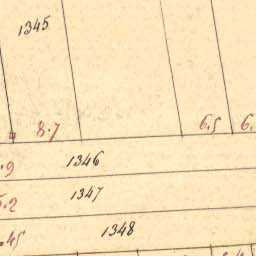 1345
8.7 6.5 6.
.9 1346
.2 1347
.45 1348